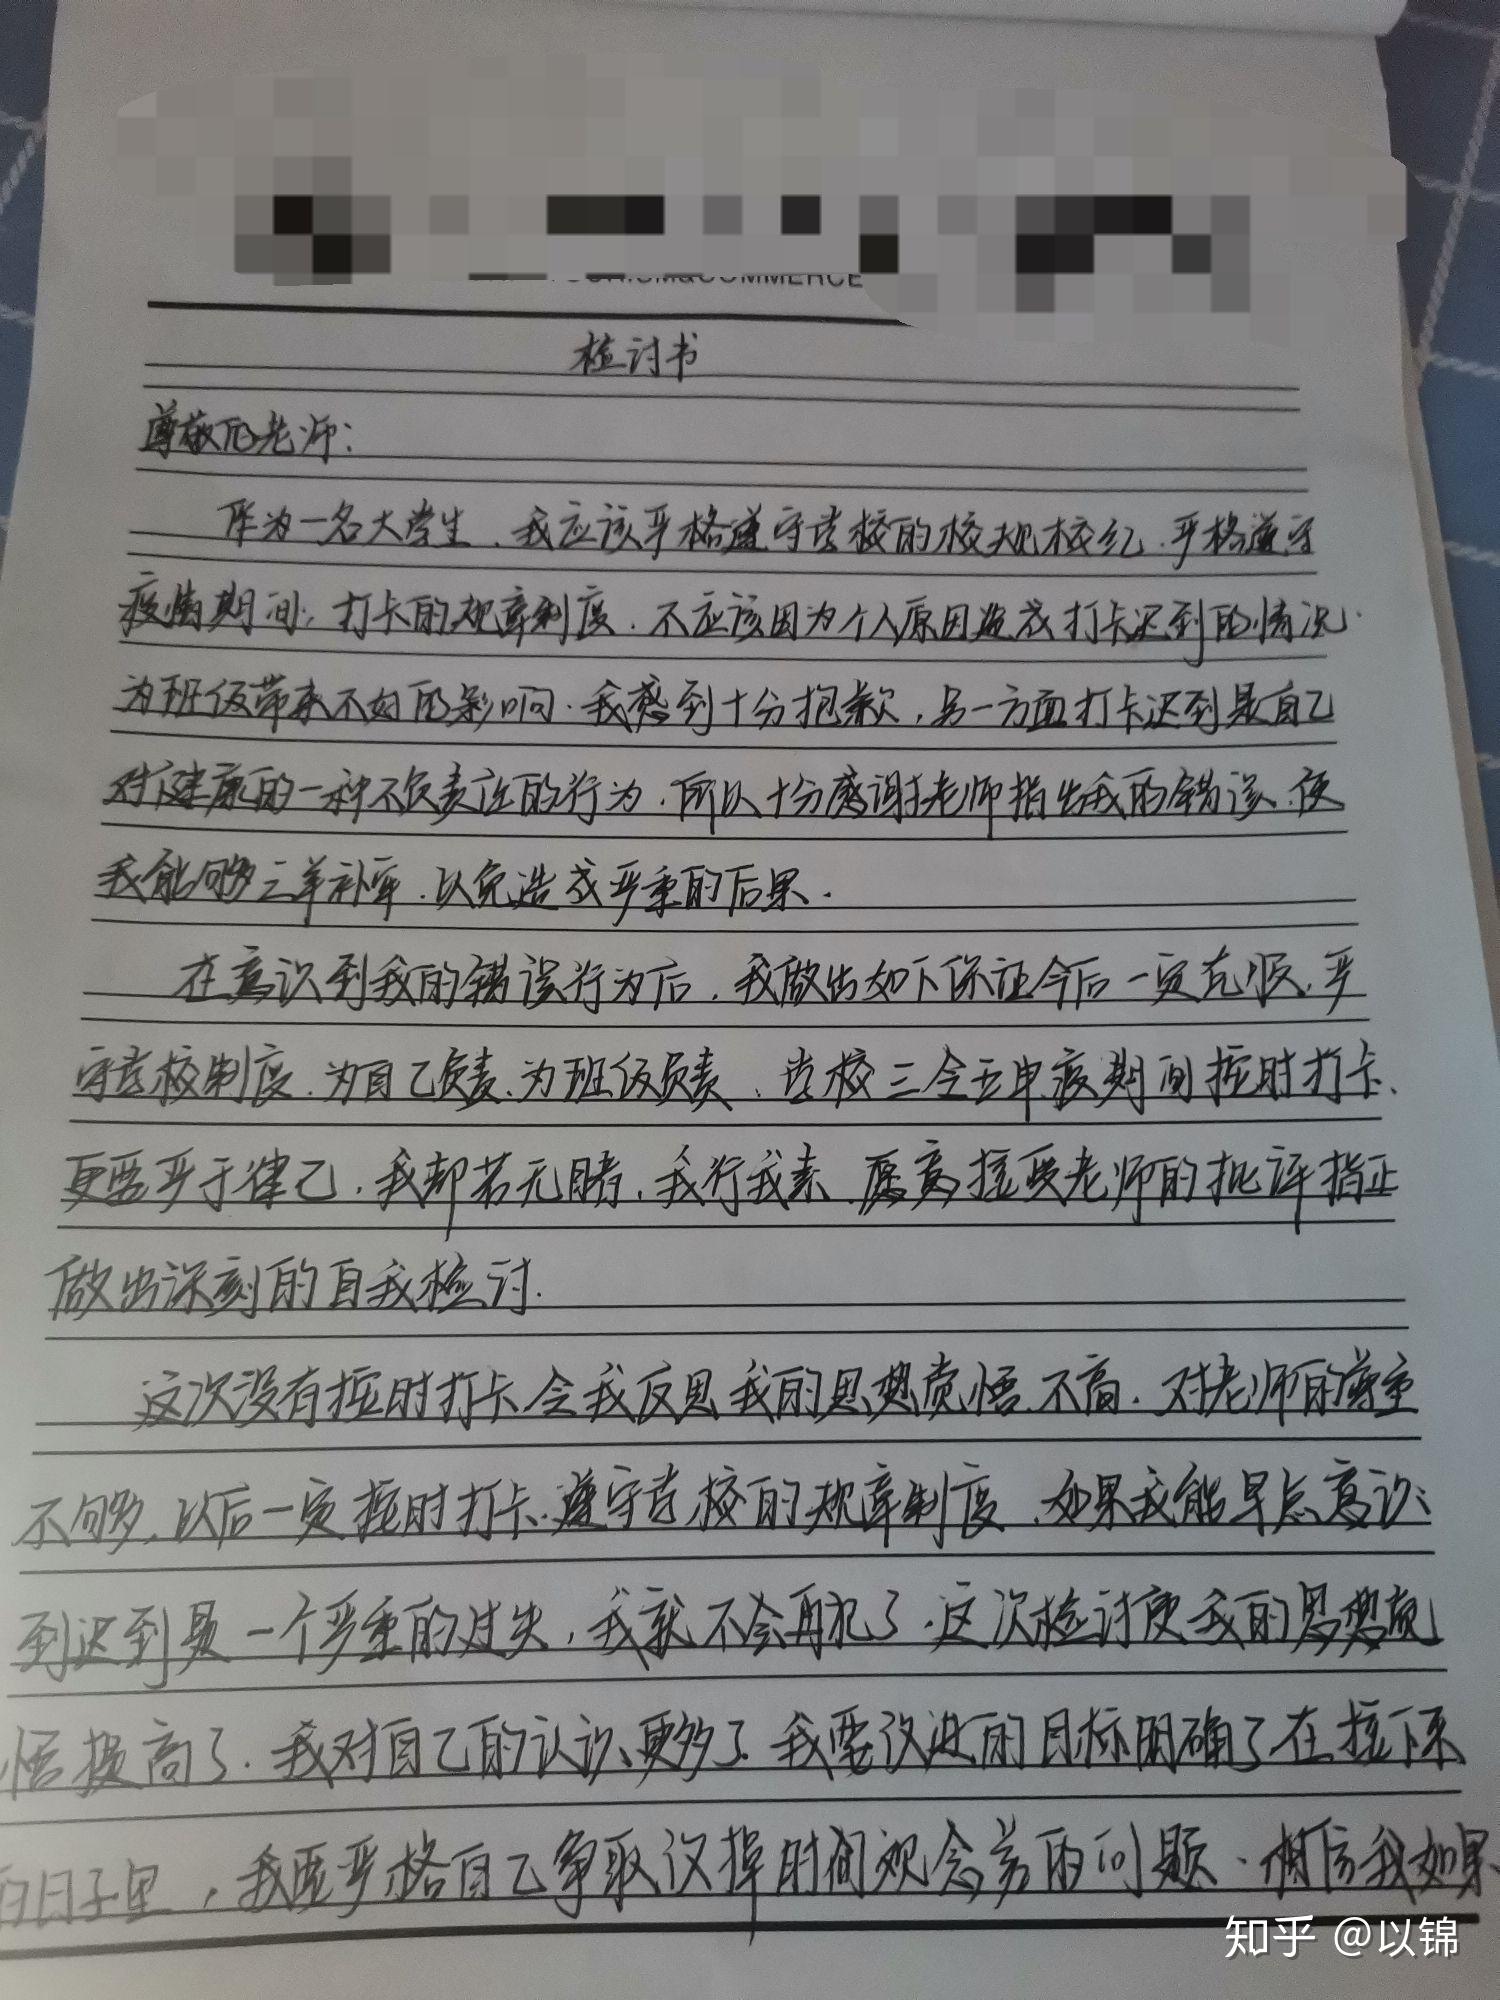 COMMERCE
检讨书
尊敬的老师:
作为一名大学生,我应该严格遵守学校的校规校纪,严格遵守
疫情期间,打卡的规章制度,不应该因为个人原因造成打卡迟到的情况.
为班级带来不好的影响.我感到十分抱歉,另一方面打卡迟到是自己
对健康的一种不负责任的行为,所以十分感谢老师指出我的错误,使
我能够亡羊补牢,以免造成严重的后果.
在意识到我的错误行为后,我做出如下保证今后一定克服,严
守学校制度,为自己负责,为班级负责,学校三令五申疫期间按时打卡,
更要严于律己,我却若无睹,我行我素,愿意接受老师的批评指正
做出深刻的自我检讨.
这次没有按时打卡,令我反思我的思想觉悟不高,对老师的尊重
不够,以后一定按时打卡,遵守学校的规章制度,如果我能早点意识
到迟到是一个严重的过失,我就不会再犯了.这次检讨使我的思想觉
悟提高了.我对自己的认识更多了,我要改进的目标明确了在接下来
的日子里,我要严格自己争取改掉时间观念差的问题.相信我如果
知乎 @以锦